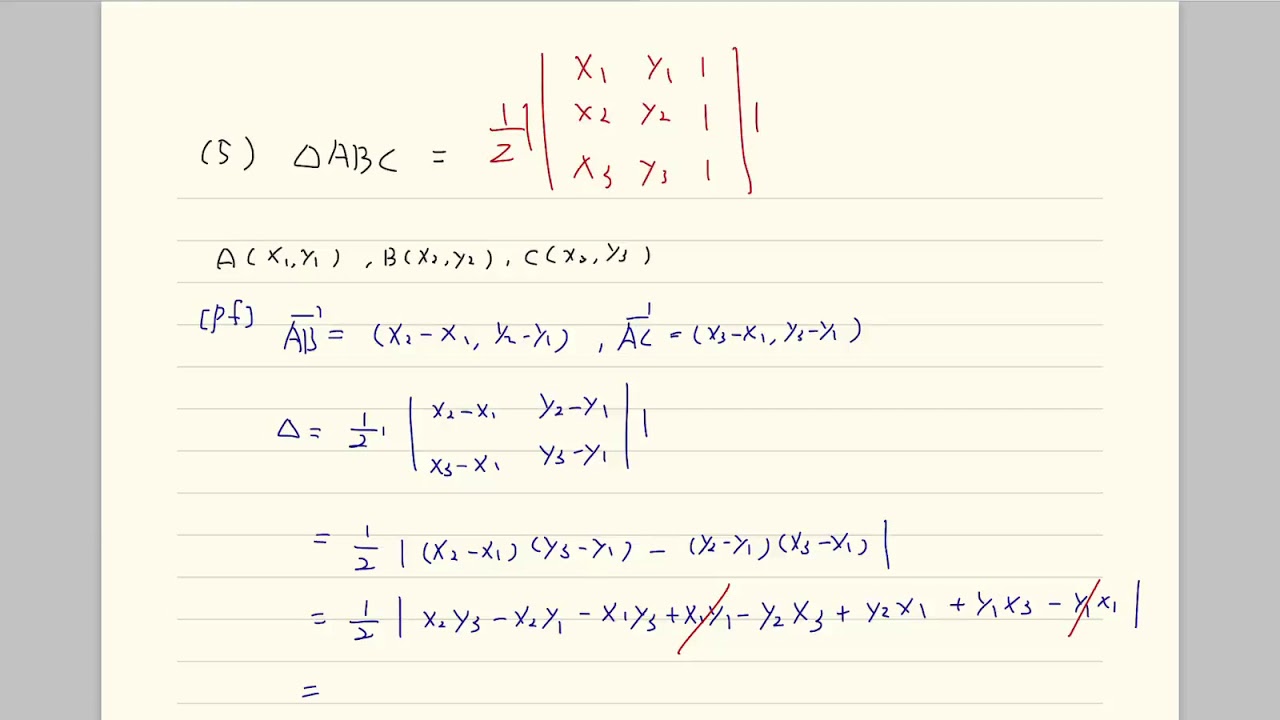 (5) △ABC = 1/2 | | x1 y1 1 |
| x2 y2 1 |
| x3 y3 1 | |
A(x1,y1), B(x2,y2), C(x3,y3)
[pf] AB⃗ = (x2-x1, y2-y1), AC⃗ = (x3-x1, y3-y1)
△ = 1/2 | | x2-x1 y2-y1 |
| x3-x1 y3-y1 | |
= 1/2 | (x2-x1)(y3-y1) - (y2-y1)(x3-x1) |
= 1/2 | x2y3 - x2y1 - x1y3 + x1y1 - y2x3 + y2x1 + y1x3 - y1x1 |
=